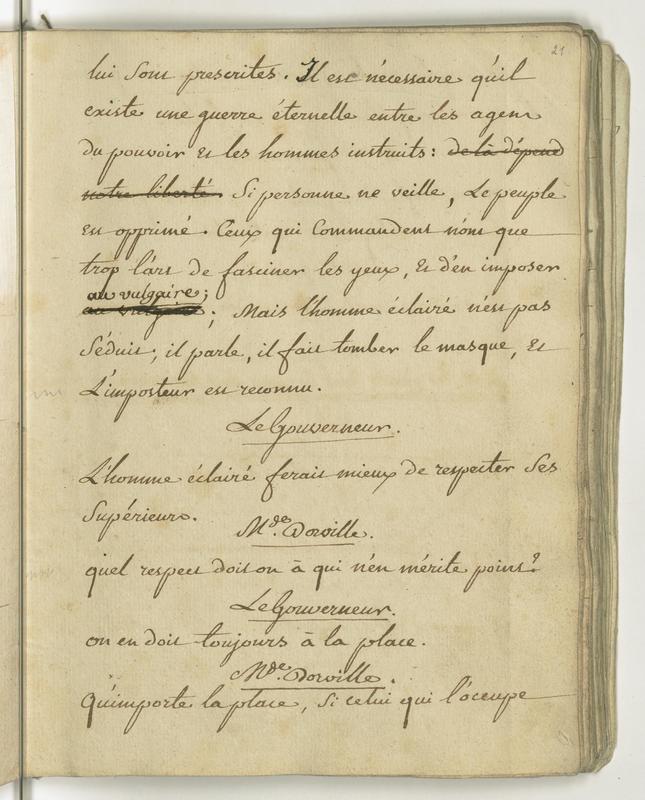 21
lui sont prescrites. Il est nécessaire qu'il
existe une guerre éternelle entre les agens
du pouvoir et les hommes instruits: de là dépend
notre liberté. Si personne ne veille, Le peuple
est opprimé. Ceux qui Commandent n'ont que
trop l'art de fasciner les yeux, et d'en imposer
au vulgaire;
au vulgaire; Mais l'homme éclairé n'est pas
Séduit; il parle, il fait tomber le masque, et
L'imposteur est reconnu.
Le Gouverneur.
L'homme éclairé ferait mieux de respecter Ses
Supérieurs.
Mde. Dorville.
quel respect doit on à qui n'en mérite point?
Le Gouverneur.
on en doit toujours à la place.
Mde. Dorville.
Qu'importe la place, Si celui qui l'occupe